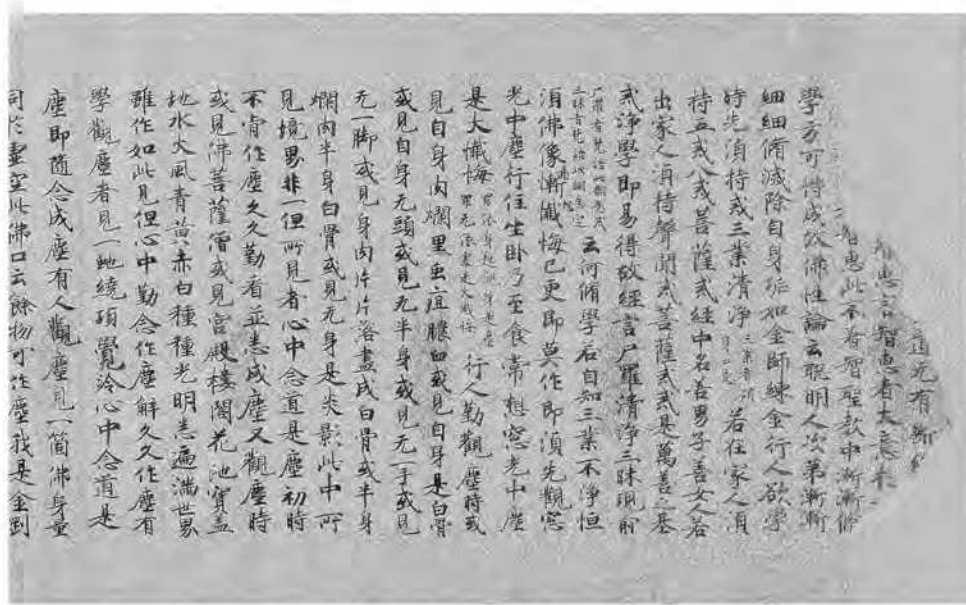 道无有
智惠言智惠者大意
智惠此不着智聖教中漸漸修
學方可得成就佛性論云聰明人次第漸漸
細細脩滅除自身垢如金師練金行人欲學
時先湏持戒三業清净三業者身口是若在家人湏
持五戒八戒菩薩戒經中名善男子善女人若
出家人湏持聲聞戒菩薩戒戒是萬善之基
戒净學即易得故經言尸羅清净三昧現前
云何脩學若自知三業不净恒
湏佛像慚懺悔已更即莫作即湏先觀窓
光中塵行住坐卧乃至食常想窓光中塵
是大懺悔行人勤觀塵時或
見自身肉爛里虫疽膿血或見自身是白骨
或見自身无頭或見无半身或見无一手或見
无一脚或見身肉片片落盡成白骨或半身
爛肉半身白骨或見无身是炎影此中所
見境界非一但所見者心中念道是塵初時
不肯作塵久久勤看並悉成塵又觀塵時
或見佛菩薩僧或見宫殿樓閣花池寳盖
地水火風青黄赤白種種光明悉遍满世界
雖作如此見但心中勤念作塵解久久作塵有
學觀塵者見一虵繞項覺冷心中念道是
塵即隨念成塵有人觀塵見一箇佛身量
同於虛空此佛口云餘物可作塵我是金剛